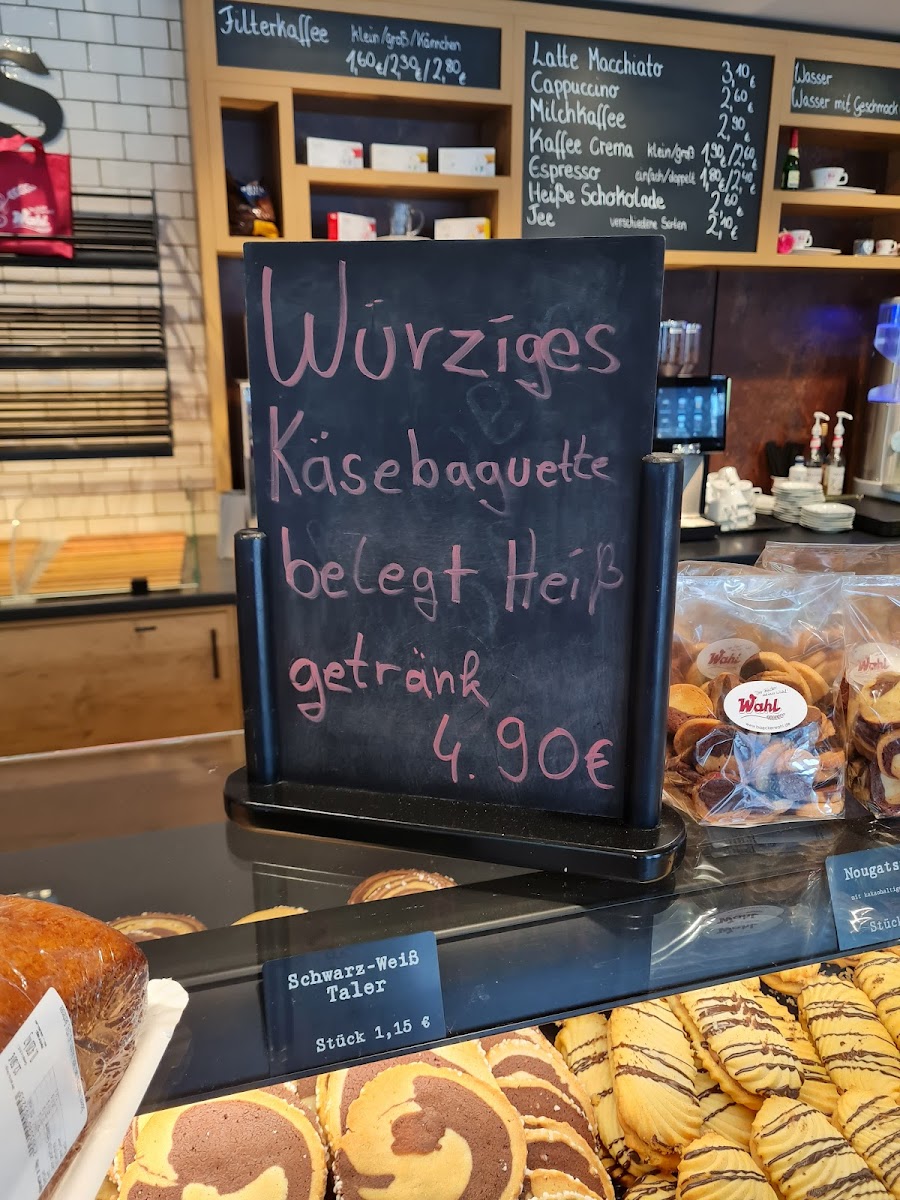 Filterkaffee klein/groß/Kännchen
1,60€/2,30€/2,80€
Latte Macchiato 3,10€
Cappuccino 2,60€
Milchkaffee 2,90€
Kaffee Crema klein/groß 1,90€/2,60€
Espresso einfach/doppelt 1,80€/2,40€
Heiße Schokolade 2,60€
Tee verschiedene Sorten 2,10€
Wasser
Wasser mit Geschmack
s
Würziges
Käsebaguette
belegt Heiß
getränk
4.90€
Wahl
Wahl
Wahl
Schwarz-Weiß
Taler
Stück 1,15 €
Nougats
Stück